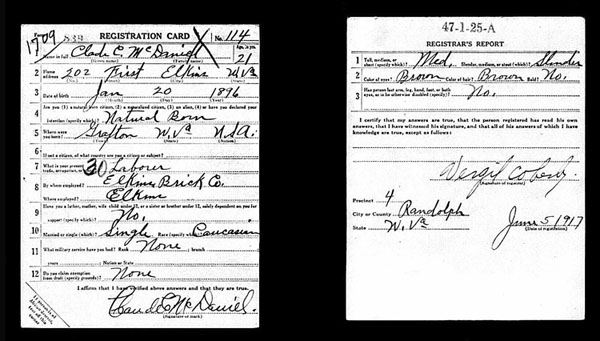 1709
REGISTRATION CARD
No. 114
1 Name in full Clade C. McDaniel Age, in yrs. 21
2 Home address 202 First Elkins W Va
3 Date of birth Jan 20 1896
4 Are you (1) a natural-born citizen, (2) a naturalized citizen, (3) an alien, (4) or have you declared your
intention (specify which)? Natural Born
5 Where were you born? Grafton W. Va U.S.A.
6 If not a citizen, of what country are you a citizen or subject?
7 What is your present trade, occupation, or office? Laborer
8 By whom employed? Elkins Brick Co.
Where employed? Elkins
9 Have you a father, mother, wife, child under 12, or a sister or brother under 12, solely dependent on you for
support (specify which)? No.
10 Married or single (which)? Single Race (specify which)? Caucasian
11 What military service have you had? Rank None branch
years Nation or State
12 Do you claim exemption from draft (specify grounds)? None
I affirm that I have verified above answers and that they are true.
Claud C McDaniel.
(Signature or mark)
47-1-25-A
REGISTRAR'S REPORT
1 Tall, medium, or short (specify which)? Med. Slender, medium, or stout (which)? Slender
2 Color of eyes? Brown Color of hair? Brown Bald? No.
3 Has person lost arm, leg, hand, foot, or both eyes, or is he otherwise disabled (specify)? No.
I certify that my answers are true, that the person registered has read his own
answers, that I have witnessed his signature, and that all of his answers of which I have
knowledge are true, except as follows:
(Signature of registrar)
Precinct 4
City or County Randolph
State W. Va
June 5 1917
(Date of registration)